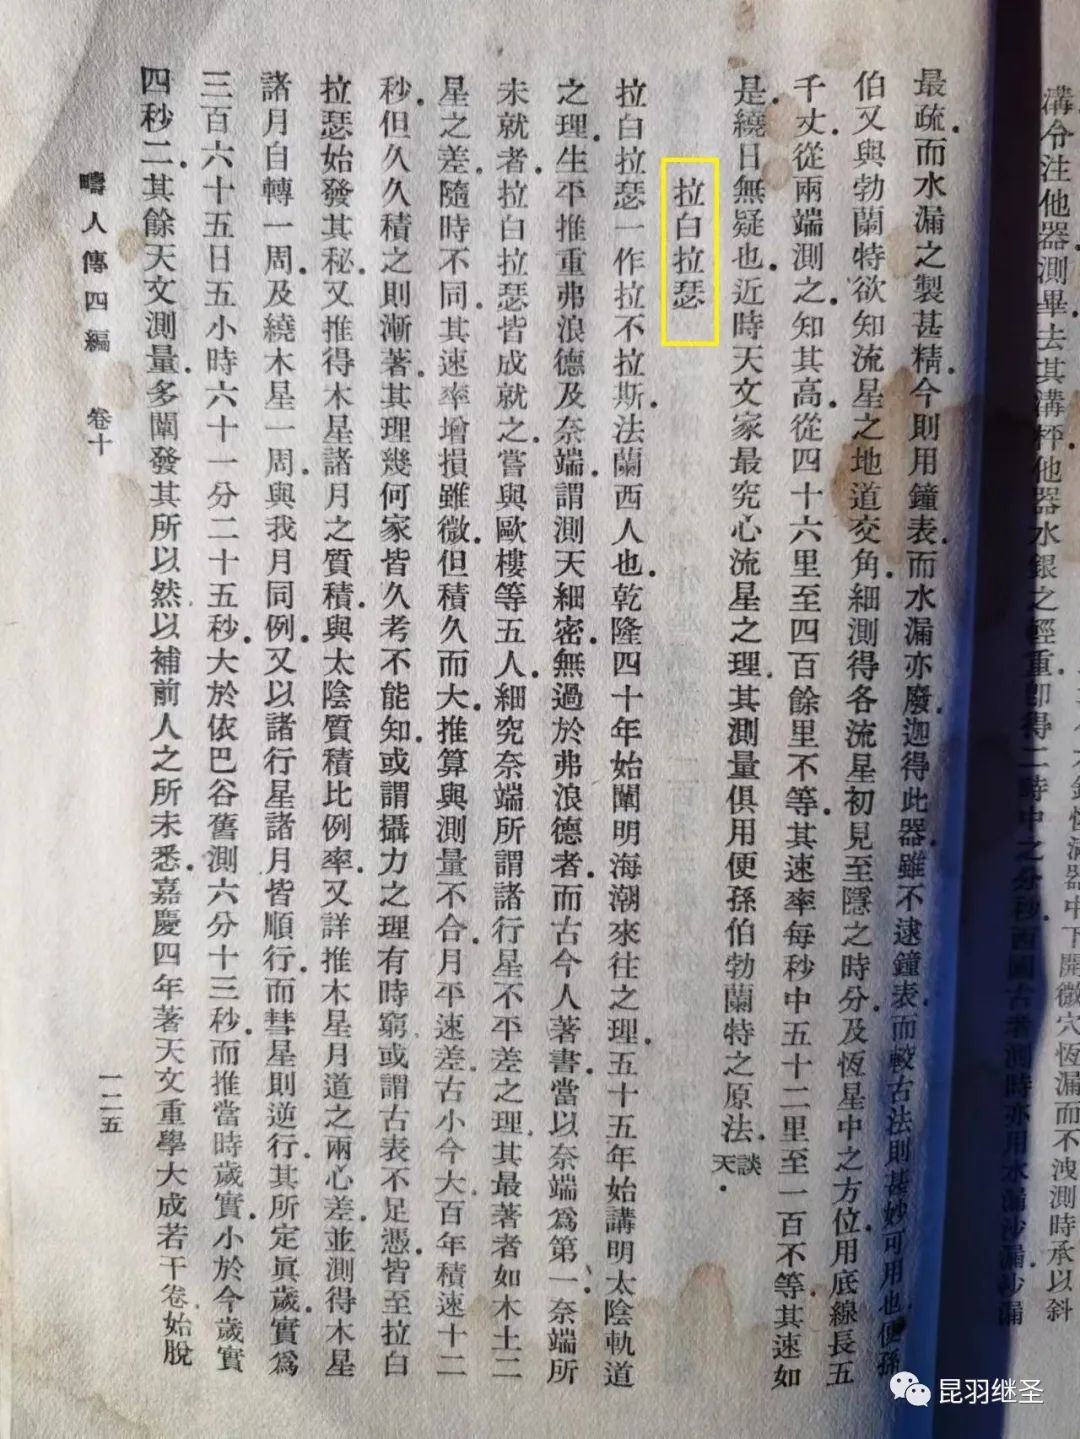 溝令注他器測畢去其溝枰他器水銀之輕重即得二時中之分秒西國古者測時亦用水漏沙漏沙漏
最疏而水漏之製甚精今則用鐘表而水漏亦廢迦得此器雖不逮鐘表而較古法則甚妙可用也便孫
伯又與勃蘭特欲知流星之地道交角細測得各流星初見至隱之時分及恆星中之方位用底線長五
千丈從兩端測之知其高從四十六里至四百餘里不等其速率每秒中五十二里至一百不等其速如
是繞日無疑也近時天文家最究心流星之理其測量俱用便孫伯勃蘭特之原法談天
拉白拉瑟
拉白拉瑟一作拉不拉斯法蘭西人也乾隆四十年始闡明海潮來往之理五十五年始講明太陰軌道
之理生平推重弗浪德及奈端謂測天細密無過於弗浪德者而古今人著書當以奈端為第一奈端所
未就者拉白拉瑟皆成就之嘗與歐樓等五人細究奈端所謂諸行星不平差之理其最著者如木土二
星之差隨時不同其速率增損雖微但積久而大推算與測量不合月平速差古小今大百年積速十二
秒但久久積之則漸著其理幾何家皆久考不能知或謂攝力之理有時窮或謂古表不足憑皆至拉白
拉瑟始發其秘又推得木星諸月之質積與太陰質積比例率又詳推木星月道之兩心差並測得木星
諸月自轉一周及繞木星一周與我月同例又以諸行星諸月皆順行而彗星則逆行其所定眞歲實為
三百六十五日五小時六十一分二十五秒大於依巴谷舊測六分十三秒而推當時歲實小於今歲實
四秒二其餘天文測量多闡發其所以然以補前人之所未悉嘉慶四年著天文重學大成若干卷始脫
疇人傳四編 卷十
一二五
昆羽继圣